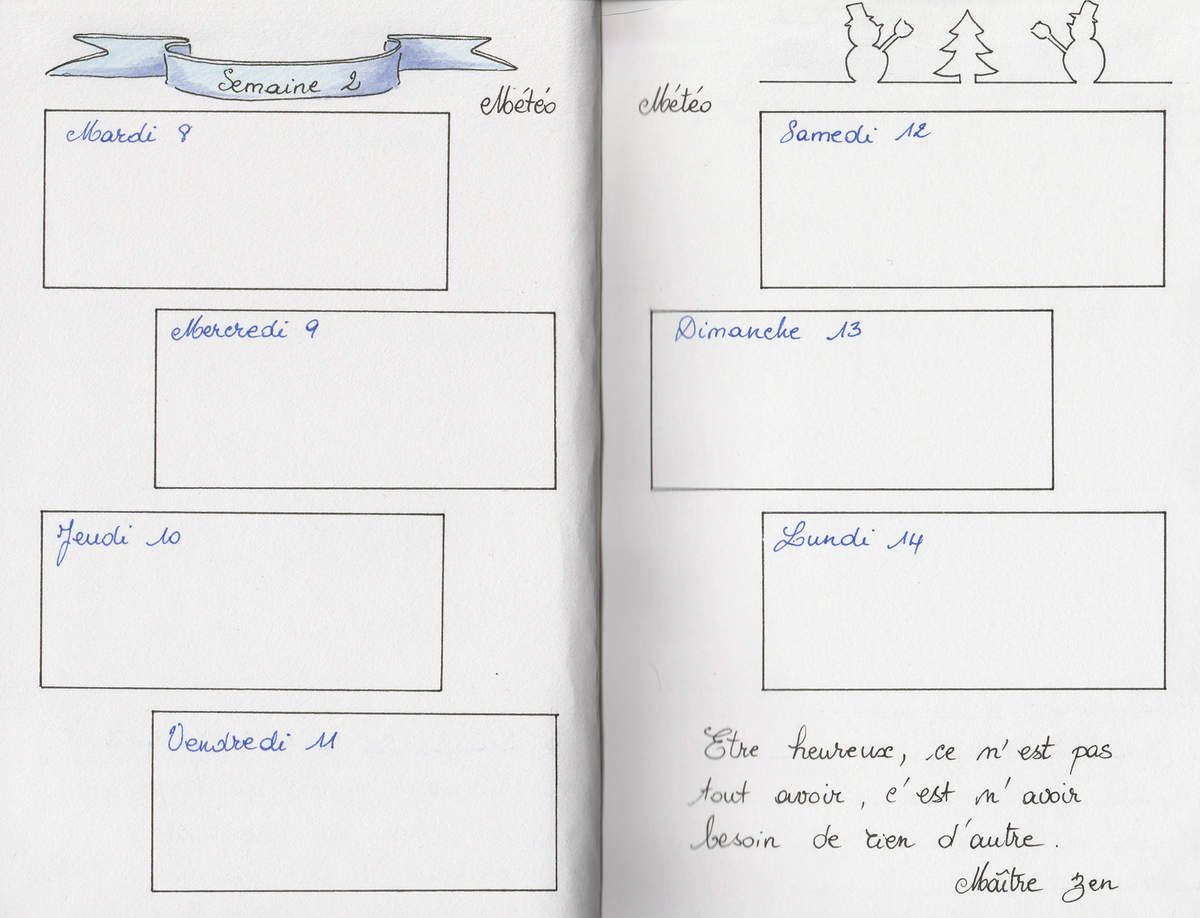 Semaine 2
Météo
Mardi 8
Mercredi 9
Jeudi 10
Vendredi 11
Météo
Samedi 12
Dimanche 13
Lundi 14
Etre heureux, ce n'est pas
tout avoir, c'est n'avoir
besoin de rien d'autre.
Maître Zen